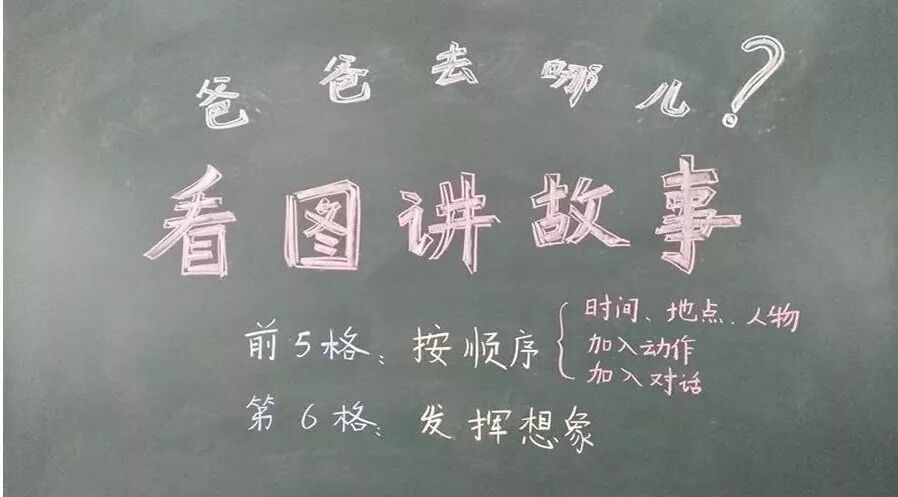 爸爸去哪儿?
看图讲故事
前5格:按顺序{时间、地点、人物
加入动作
加入对话
第6格:发挥想象